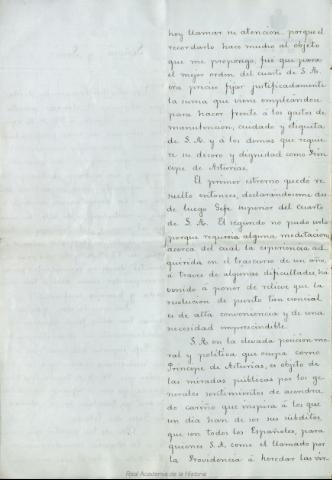 hoy llamar su atencion porque el
recordarlo hace mucho al objeto
que me propongo, fué que para
el mejor orden del cuarto de S. A.
era preciso fijar justificadamente
la suma que viene empleándose
para hacer frente á los gastos de
manutencion, cuidado y etiqueta
de S. A. y á los demas que requie
re su decoro y dignidad como Prin
cipe de Asturias.
El primer estremo quedó re
suelto entonces, declarándoseme des
de luego Gefe superior del cuarto
de S. A. El segundo no pudo serlo
porque requeria alguna meditacion
acerca del cual la esperiencia ad
quirida en el trascurso de un año,
á traves de algunas dificultades, ha
venido á poner de relieve que la
resolucion de punto tan esencial
es de alta conveniencia y de una
necesidad imprescindible.
S. A. en la elevada posicion mo
ral y política que ocupa como
Principe de Asturias, es objeto de
las miradas públicas por los ge
nerales sentimientos de acendra
do cariño que inspira á los que
un dia han de ser sus súbditos,
que son todos los Españoles, para
quienes S. A. como el llamado por
la Providencia á heredar las vir
Real Academia de la Historia